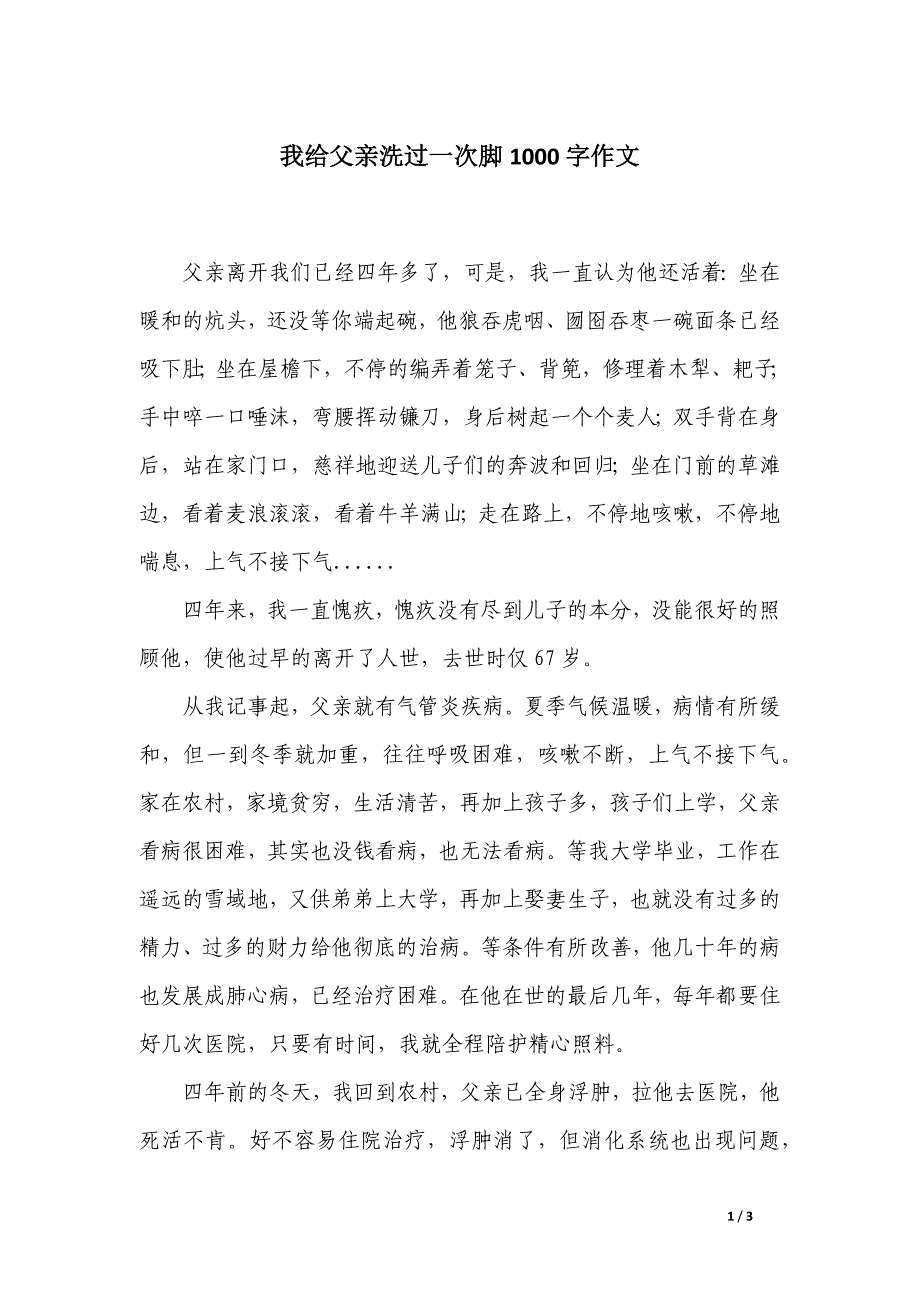 我给父亲洗过一次脚 1000 字作文
父亲离开我们已经四年多了，可是，我一直认为他还活着: 坐在
暖和的炕头，还没等你端起碗，他狼吞虎咽、囫囵吞枣一碗面条已经
吸下肚; 坐在屋檐下，不停的编弄着笼子、背篼，修理着木犁、耙子;
手中啐一口唾沫，弯腰挥动镰刀，身后树起一个个麦人; 双手背在身
后，站在家门口，慈祥地迎送儿子们的奔波和回归; 坐在门前的草滩
边，看着麦浪滚滚，看着牛羊满山; 走在路上，不停地咳嗽，不停地
喘息，上气不接下气......
四年来，我一直愧疚，愧疚没有尽到儿子的本分，没能很好的照
顾他，使他过早的离开了人世，去世时仅 67 岁。
从我记事起，父亲就有气管炎疾病。夏季气候温暖，病情有所缓
和，但一到冬季就加重，往往呼吸困难，咳嗽不断，上气不接下气。
家在农村，家境贫穷，生活清苦，再加上孩子多，孩子们上学，父亲
看病很困难，其实也没钱看病，也无法看病。等我大学毕业，工作在
遥远的雪域地，又供弟弟上大学，再加上娶妻生子，也就没有过多的
精力、过多的财力给他彻底的治病。等条件有所改善，他几十年的病
也发展成肺心病，已经治疗困难。在他在世的最后几年，每年都要住
好几次医院，只要有时间，我就全程陪护精心照料。
四年前的冬天，我回到农村，父亲已全身浮肿，拉他去医院，他
死活不肯。好不容易住院治疗，浮肿消了，但消化系统也出现问题，
1 / 3